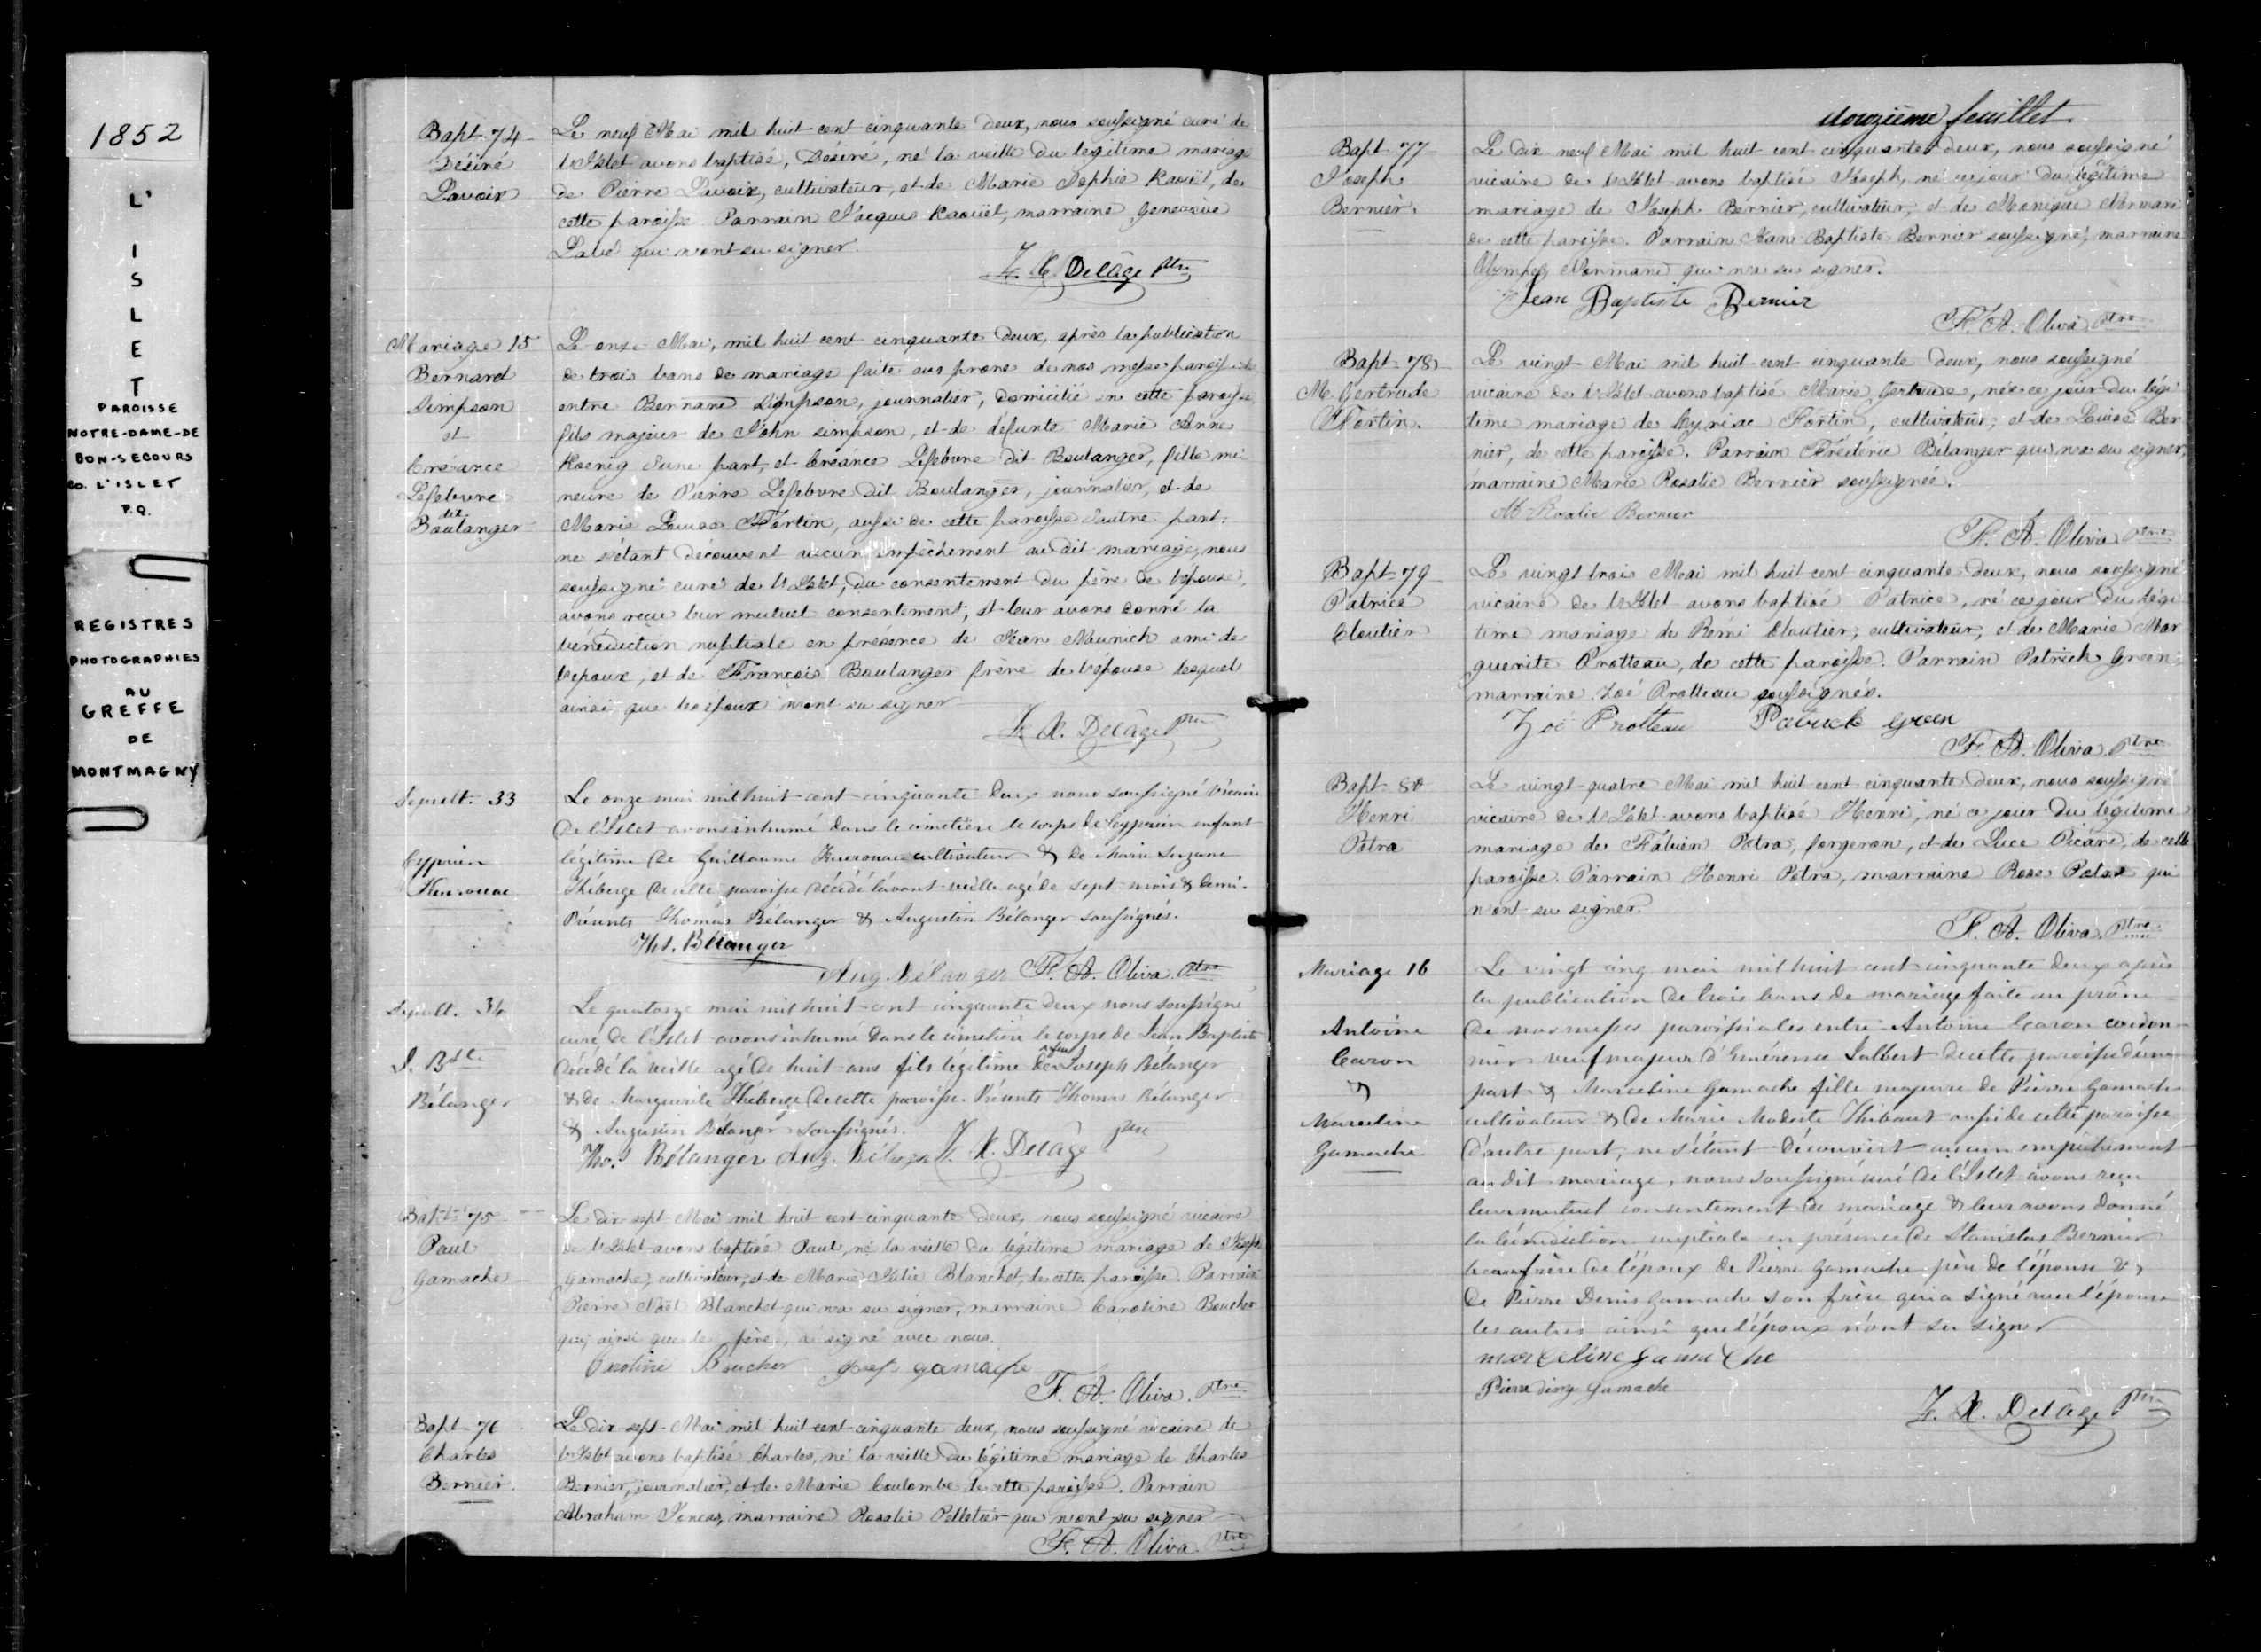 1852
L'
I
S
L
E
T
PAROISSE
NOTRE-DAME-DE
BON-SECOURS
CO. L'ISLET
P.Q.
REGISTRES
PHOTOGRAPHIES
AU
GREFFE
DE
MONTMAGNY
Bapt. 74
Désiré
Lavoix
Le neuf Mai mil huit cent cinquante deux, nous soussigné curé de
l'Islet avons baptisé, Désiré, né la veille du légitime mariage
de Pierre Lavoix, cultivateur, et de Marie Sophie Kaouët, de
cette paroisse Parrain Jacques Kaouët, marraine Geneviève
qui n'ont su signer
Delâge Ptre
Mariage 15
Bernard
Simpson
et
Créance
Lefebvre
dit
Boulanger
Le onze Mai, mil huit cent cinquante deux, après la publication
de trois bans de mariage faite aux prones de nos messes paroissiales
entre Bernard Simpson, journalier, domicilié en cette paroisse
fils majeur de John Simpson, et de défunte Marie Anne
Koenig d'une part, et Créance Lefebvre dit Boulanger, fille mi
neure de Pierre Lefebvre dit Boulanger, journalier, et de
Marie Louise Fortin, aussi de cette paroisse d'autre part:
ne s'étant découvert aucun empêchement au dit mariage, nous
soussigné curé de l'Islet, du consentement du père de l'épouse,
avons reçu leur mutuel consentement, et leur avons donné la
bénédiction nuptiale en présence de Jean Munich ami de
l'epoux, et de François Boulanger frère de l'épouse lesquels
ainsi que les epoux n'ont su signer
Delâge Ptre
Sepult. 33
Cyprien
Keurouac
Le onze mai mil huit cent cinquante deux nous soussigné vicaire
de l'Islet avons inhumé dans le cimetière le corps de Cyprien enfant
légitime de Guillaume cultivateur & de Marie Suzanne
Théberge de cette paroisse décédé l'avant-veille agé de sept mois & demi.
Présents Thomas Bélanger & Augustin Bélanger soussignés.
Ths. Bélanger
Aug Bélanger F. A. Oliva Ptre
Sepult. 34
J. Bste
Bélanger
Le quatorze mai mil huit cent cinquante deux nous soussigné
curé de l'Islet avons inhumé dans le cimetière le corps de Jean Baptiste
décédé la veille agé de huit ans fils légitime de Joseph Bélanger
& de Marguerite Théberge de cette paroisse. Présents Thomas Bélanger
& Augustin Bélanger soussignés.
Tho.s Bélanger Aug. Bélanger Delâge Ptre
Bapt. 75
Paul
Gamache
Le dix sept Mai mil huit cent cinquante deux, nous soussigné vicaire
de l'Islet avons baptisé Paul, né la veille du légitime mariage de Joseph
Gamache, cultivateur, et de Marie Julie Blanchet, de cette paroisse Parrain
Pierre Noël Blanchet qui n'a su signer, marraine Caroline Boucher
qui, ainsi que le père, a signé avec nous.
Caroline Boucher gamache
F. A. Oliva. Ptre
Bapt. 76
Charles
Bernier.
Le dix sept Mai mil huit cent cinquante deux, nous soussigné vicaire de
l'Islet avons baptisé Charles, né la veille du légitime mariage de Charles
Bernier, journalier, et de Marie Coulombe de cette paroisse. Parrain
Abraham marraine Rosalie Pelletier qui n'ont su signer
F. A. Oliva Ptre
douzième feuillet.
Bapt 77
Joseph
Bernier.
Le dix neuf Mai mil huit cent cinquante deux, nous soussigné
vicaire de l'Islet avons baptisé Joseph, né ce jour du légitime
mariage de Joseph Bernier, cultivateur, et de Monique Normand
de cette paroisse. Parrain Jean Baptiste Bernier soussigné, marraine
Olympe Normand qui n'a su signer.
Jean Baptiste Bernier
F. A. Oliva Ptre
Bapt. 78
M. Gertrude
Fortin.
Le vingt Mai mil huit cent cinquante deux, nous soussigné
vicaire de l'Islet avons baptisé Marie Gertrude, née ce jour du légi
time mariage de Cyriac Fortin, cultivateur, et de Louise Ber
nier, de cette paroisse. Parrain Frédéric Bélanger qui n'a su signer,
marraine Marie Rosalie Bernier soussignée.
M Rosalie Bernier
F. A. Oliva Ptre
Bapt 79
Patrice
Cloutier
Le vingt trois Mai mil huit cent cinquante deux, nous soussigné
vicaire de l'Islet avons baptisé Patrice, né ce jour du légi
time mariage de Rémi Cloutier, cultivateur, et de Marie Mar
guerite Protteau, de cette paroisse. Parrain Patrick Green,
marraine Zoé Protteau soussignés.
Zoé Protteau Patrick Green
F. A. Oliva Ptre
Bapt 80
Henri
Potra
Le vingt quatre Mai mil huit cent cinquante deux, nous soussigné
vicaire de l'Islet avons baptisé Henri, né ce jour du légitime
mariage de Fabien Potra, forgeron, et de Luce Picard, de cette
paroisse. Parrain Henri Potra, marraine Rose Potra qui
n'ont su signer.
F. A. Oliva. Ptre
Mariage 16
Antoine
Caron
&
Marceline
Gamache
Le vingt cinq mai mil huit cent cinquante deux après
la publication de trois bans de mariage faite au prône
de nos messes paroissiales entre Antoine Caron cordon-
nier veuf majeur d'Emérence Jalbert de cette paroisse d'une
part & Marceline Gamache fille majeure de Pierre Gamache
cultivateur & de Marie Modeste Thibaut aussi de cette paroisse
d'autre part, ne s'étant découvert aucun empêchement
au dit mariage, nous soussigné curé de l'Islet avons reçu
leur mutuel consentement de mariage & leur avons donné
la bénédiction nuptiale en présence de Stanislas Bernier
beaufrère de l'époux de Pierre Gamache père de l'épouse &
de Pierre Denis Gamache son frère qui a signé avec l'épouse
les autres ainsi que l'époux n'ont su signer
marceline gamache
Pierre gamache
Delâge Ptre